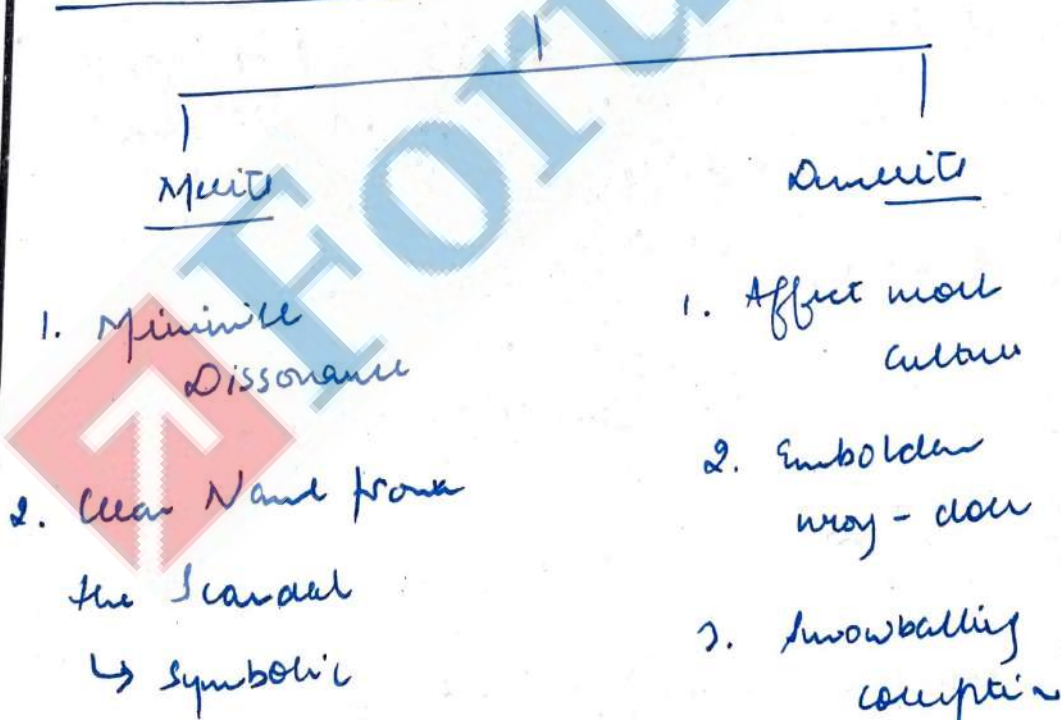 Merits
1. Minimise
Dissonance
2. Clear Name from
the Scandal
↳ Symbolic
Demerits
1. Affect work
culture
2. Embolden
wrong-doer
3. Snowballing
corruption
For